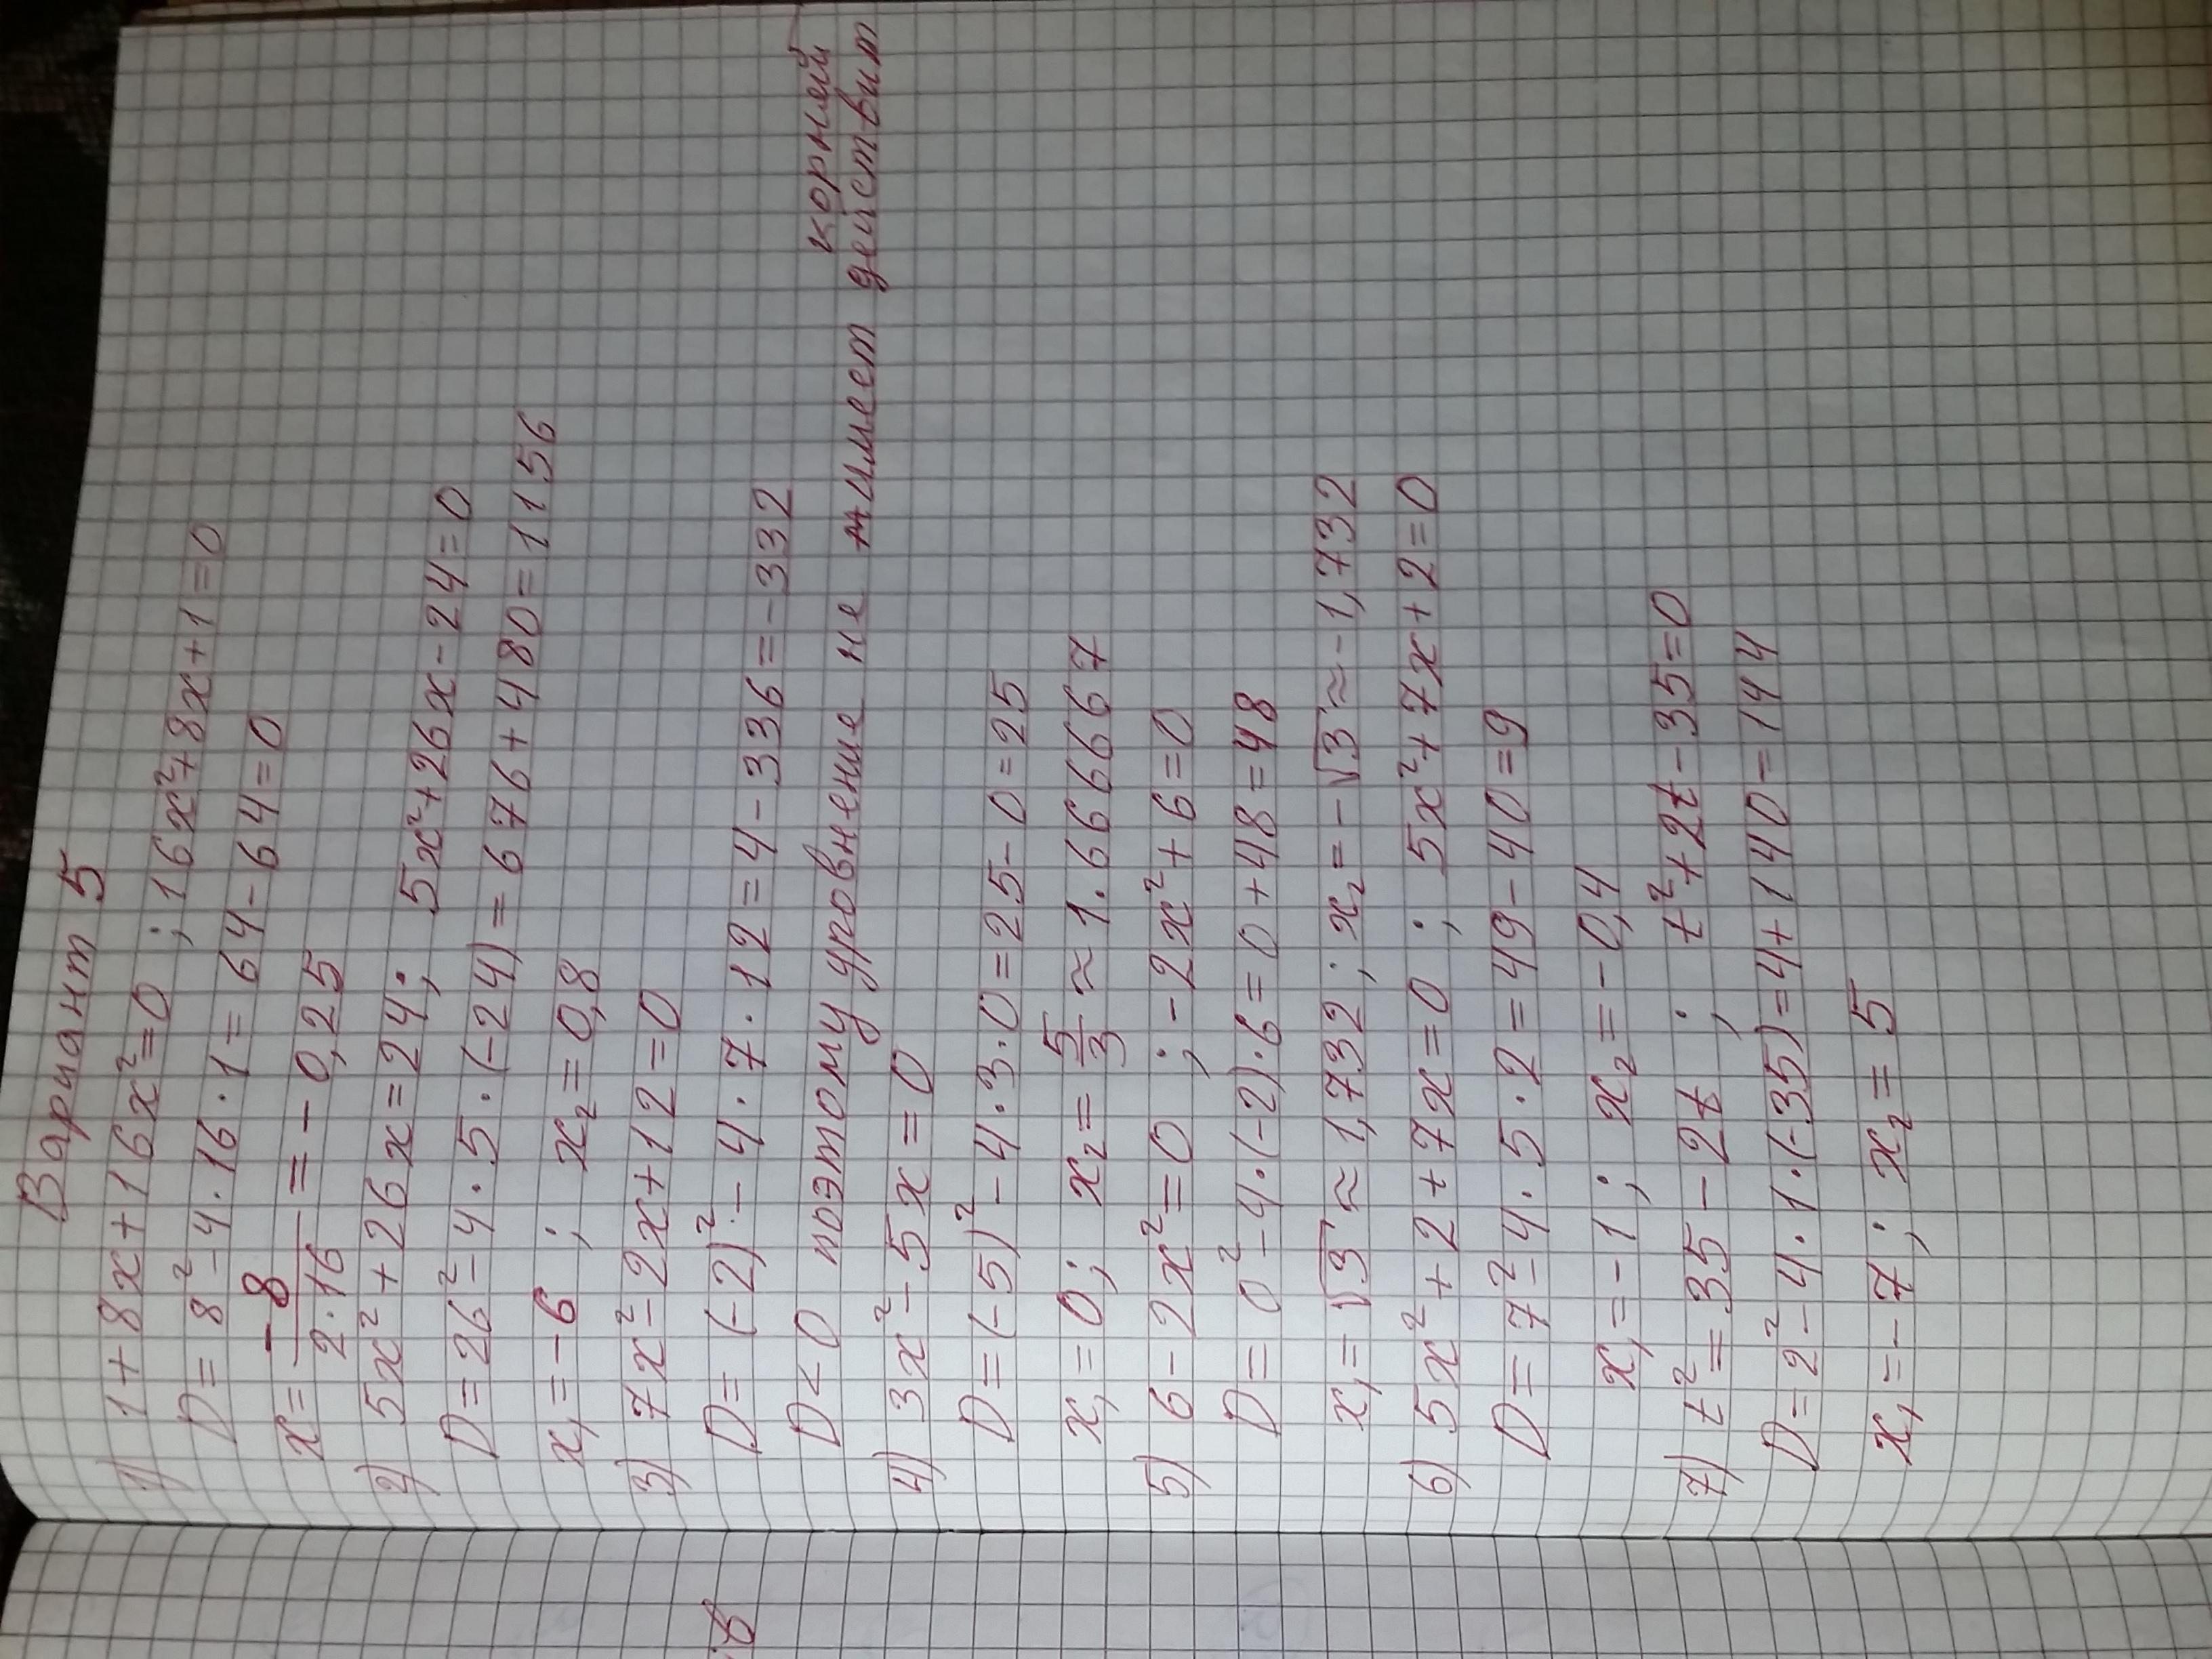 Вариант 5
1) 1+8x+16x²=0 ; 16x²+8x+1=0
D=8²-4·16·1=64-64=0
x=-8/2·16=-0,25
2) 5x²+26x=24; 5x²+26x-24=0
D=26²-4·5·(-24)=676+480=1156
x₁=-6; x₂=0,8
3) 7x²-2x+12=0
D=(-2)²-4·7·12=4-336=-332
D<0 поэтому уровнение не имеет действит корней
4) 3x²-5x=0
D=(-5)²-4·3·0=25-0=25
x₁=0; x₂=5/3≈1.666667
5) 6-2x²=0 ; -2x²+6=0
D=0²-4·(-2)·6=0+48=48
x₁=√3≈1,732; x₂=-√3≈-1,732
6) 5x²+2+7x=0 ; 5x²+7x+2=0
D=7²-4·5·2=49-40=9
x₁=-1; x₂=-0,4
7) t²=35-2t ; t²+2t-35=0
D=2²-4·1·(-35)=4+140=144
x₁=-7; x₂=5